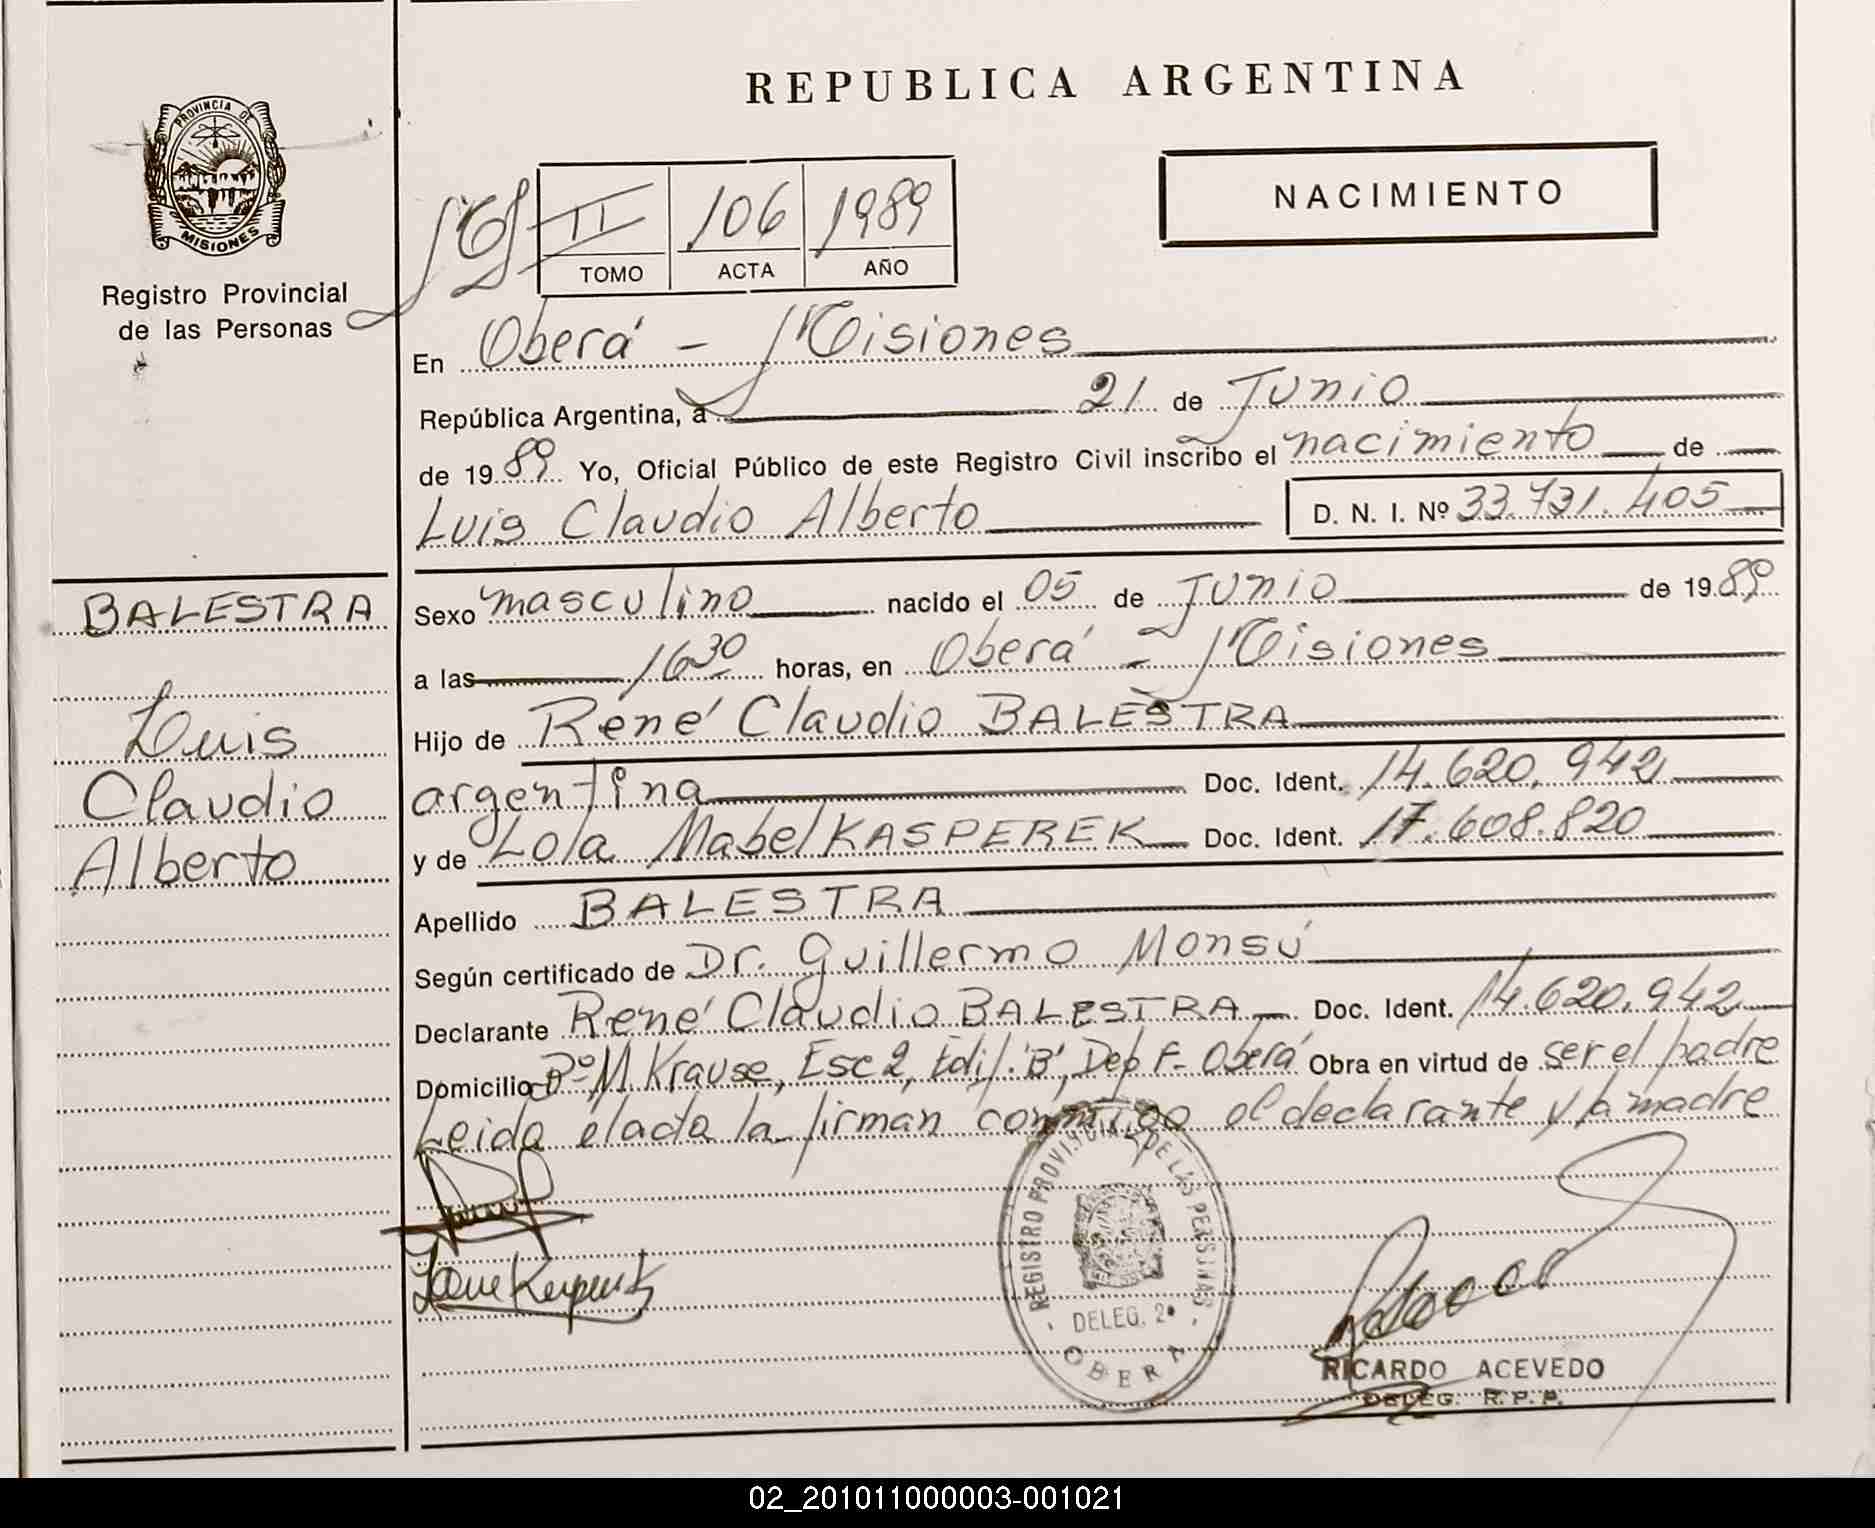 REPUBLICA ARGENTINA
PROVINCIA DE
MISIONES
Registro Provincial
de las Personas
II 106 1989
TOMO ACTA AÑO
NACIMIENTO
En Oberá - Misiones
República Argentina, a 21 de Junio
de 1989 Yo, Oficial Público de este Registro Civil inscribo el nacimiento de
Luis Claudio Alberto D. N. I. Nº 33.731.405
BALESTRA
Luis
Claudio
Alberto
Sexo masculino nacido el 05 de Junio de 1989
a las 16 30 horas, en Oberá - Misiones
Hijo de René Claudio BALESTRA
argentina Doc. Ident. 14.620.942
y de Lola Mabel KASPEREK Doc. Ident. 17.608.820
Apellido BALESTRA
Según certificado de Dr. Guillermo Monsú
Declarante René Claudio BALESTRA Doc. Ident. 14.620.942
Domicilio Bº M. Krause, Esc 2, Edif. "B", Dep F - Oberá Obra en virtud de ser el padre
Leida el acta la firman conmigo el declarante y la madre
REGISTRO PROVINCIAL DE LAS PERSONAS
DELEG. 2ª
OBERA
RICARDO ACEVEDO
DELEG. R.P.P.
02_201011000003-001021